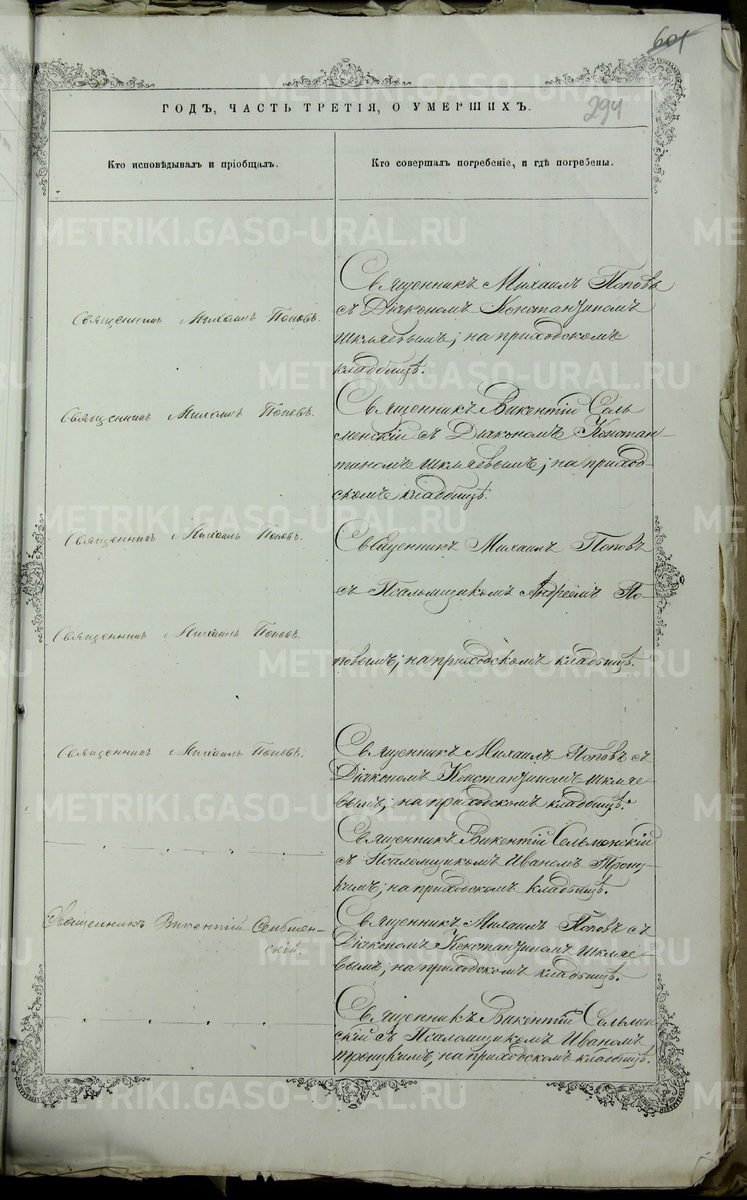 601
294
ГОДЪ, ЧАСТЬ ТРЕТІЯ, О УМЕРШИХЪ.
Кто исповѣдывалъ и пріобщалъ.
Кто совершалъ погребеніе, и гдѣ погребены.
Священникъ Михаилъ Поповъ.
Священникъ Михаилъ Поповъ
съ Діакономъ Константиномъ
Шкляевымъ; на приходскомъ
кладбищѣ.
Священникъ Михаилъ Поповъ.
Священникъ Викентій Сель
менскій съ Діакономъ Констан-
тиномъ Шкляевымъ; на приход-
скомъ кладбищѣ.
Священникъ Михаилъ Поповъ.
Священникъ Михаилъ Поповъ
съ Псаломщикомъ Андреемъ По-
Священникъ Михаилъ Поповъ.
повымъ; на приходскомъ кладбищѣ.
Священникъ Михаилъ Поповъ.
Священникъ Михаилъ Поповъ съ
Діакономъ Константиномъ Шкляе-
вымъ; на приходскомъ кладбищѣ.
Священникъ Викентій Сельменскій
съ Псаломщикомъ Иваномъ Троиц-
кимъ; на приходскомъ кладбищѣ.
Священникъ Викентій Сельмен-
скій.
Священникъ Михаилъ Поповъ съ
Діакономъ Константиномъ Шкляе-
вымъ; на приходскомъ кладбищѣ.
Священникъ Викентій Сельмен
скій съ Псаломщикомъ Иваномъ
Троицкимъ, на приходскомъ кладбищѣ.
METRIKI.GASO-URAL.RU